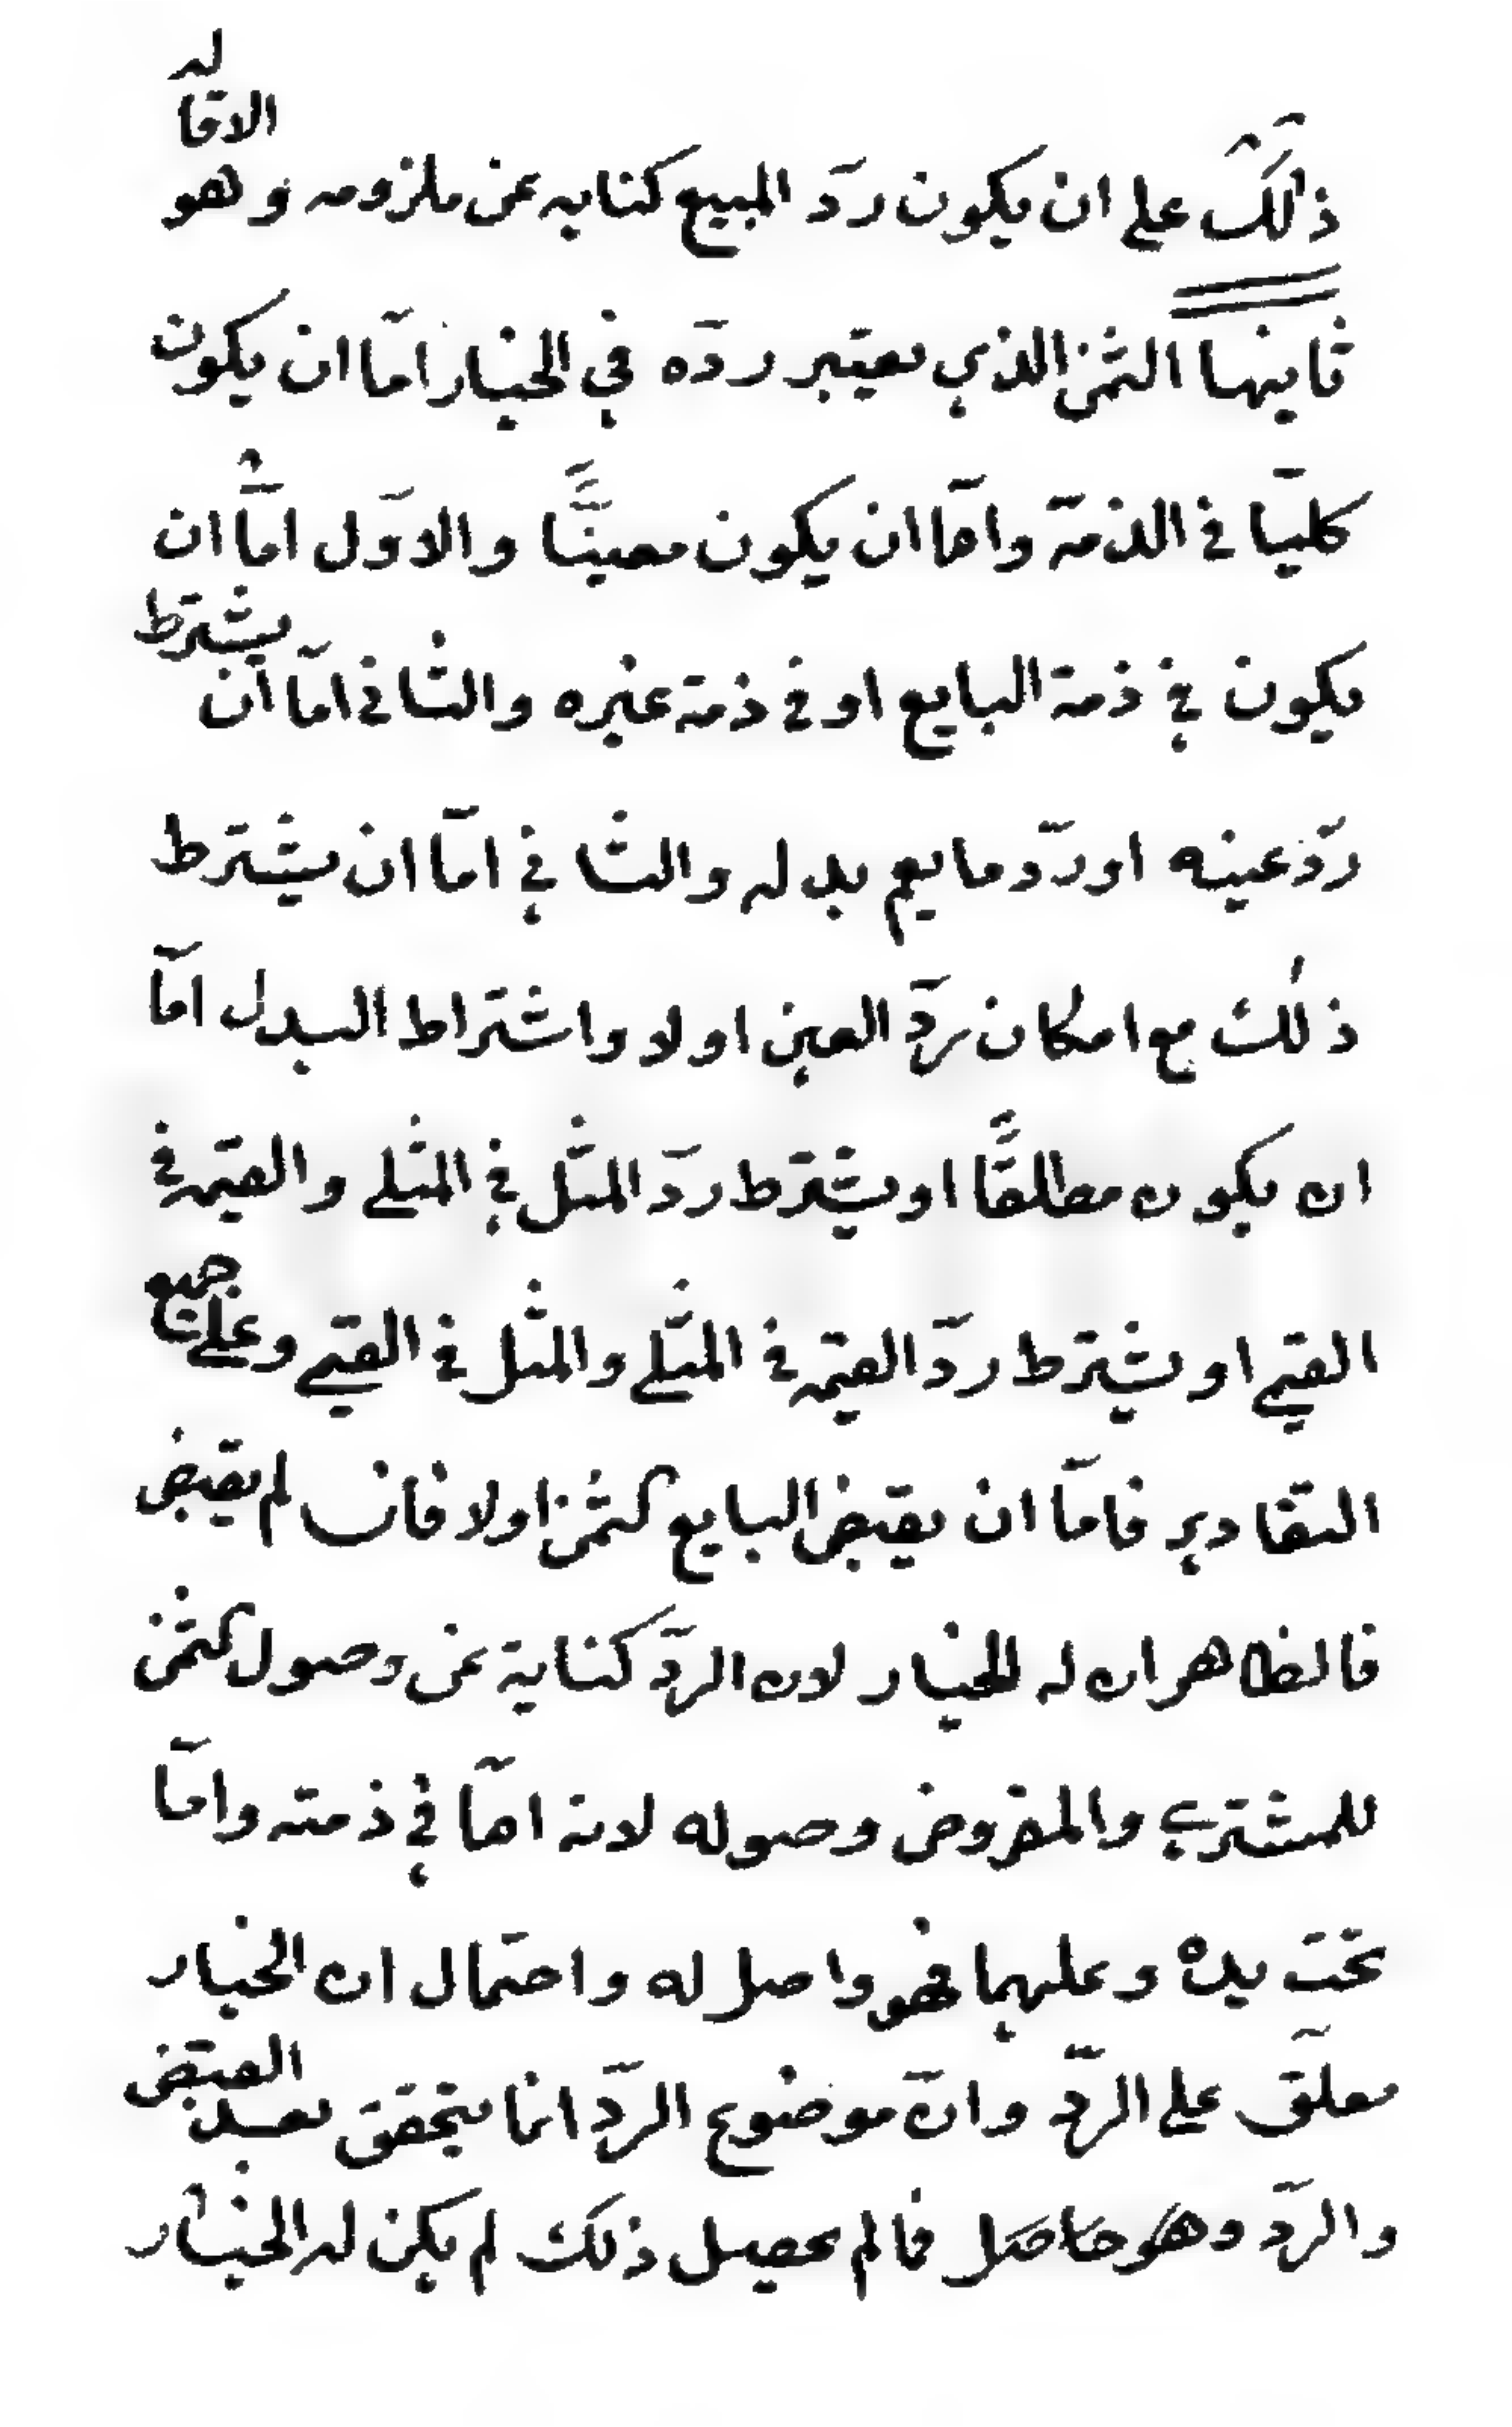 ذلك على ان يكون ردّ المبيع كنايه عن ملزومه وهو الاقاله
ثانيها الثمن الذي يعتبر ردّه في الخيار امّا ان يكون
كليّا في الذمّة وامّا ان يكون معينًّا والاوّل امّا ان
يكون في ذمة البايع او في ذمّة غيره والثاني امّا ان يشترط
ردّ عينه او ردّ ما يعم بدله والثاني امّا ان يشترط
ذلك مع امكان ردّ العين اولا واشتراط البدل امّا
ان يكون مطلقًا او يشترط ردّ المثل في المثلي والقيمه في
القيمي او يشترط ردّ القيمه في المثلي والمثل في القيمي وعلى جميع
التقادير فامّا ان يقبض البايع الثمن اولا فان لم يقبض
فالظاهر ان له الخيار لان الردّ كناية عن وصول الثمن
للمشتري والمفروض وصوله لانه امّا في ذمته وامّا
تحت يده وعليهما فهو واصل له واحتمال ان الخيار
معلّق على الردّ وانّ موضوع الردّ انما يتحقق بعد القبض
والردّ وهو حاصل فما لم يحصل ذلك لم يكن له الخيار